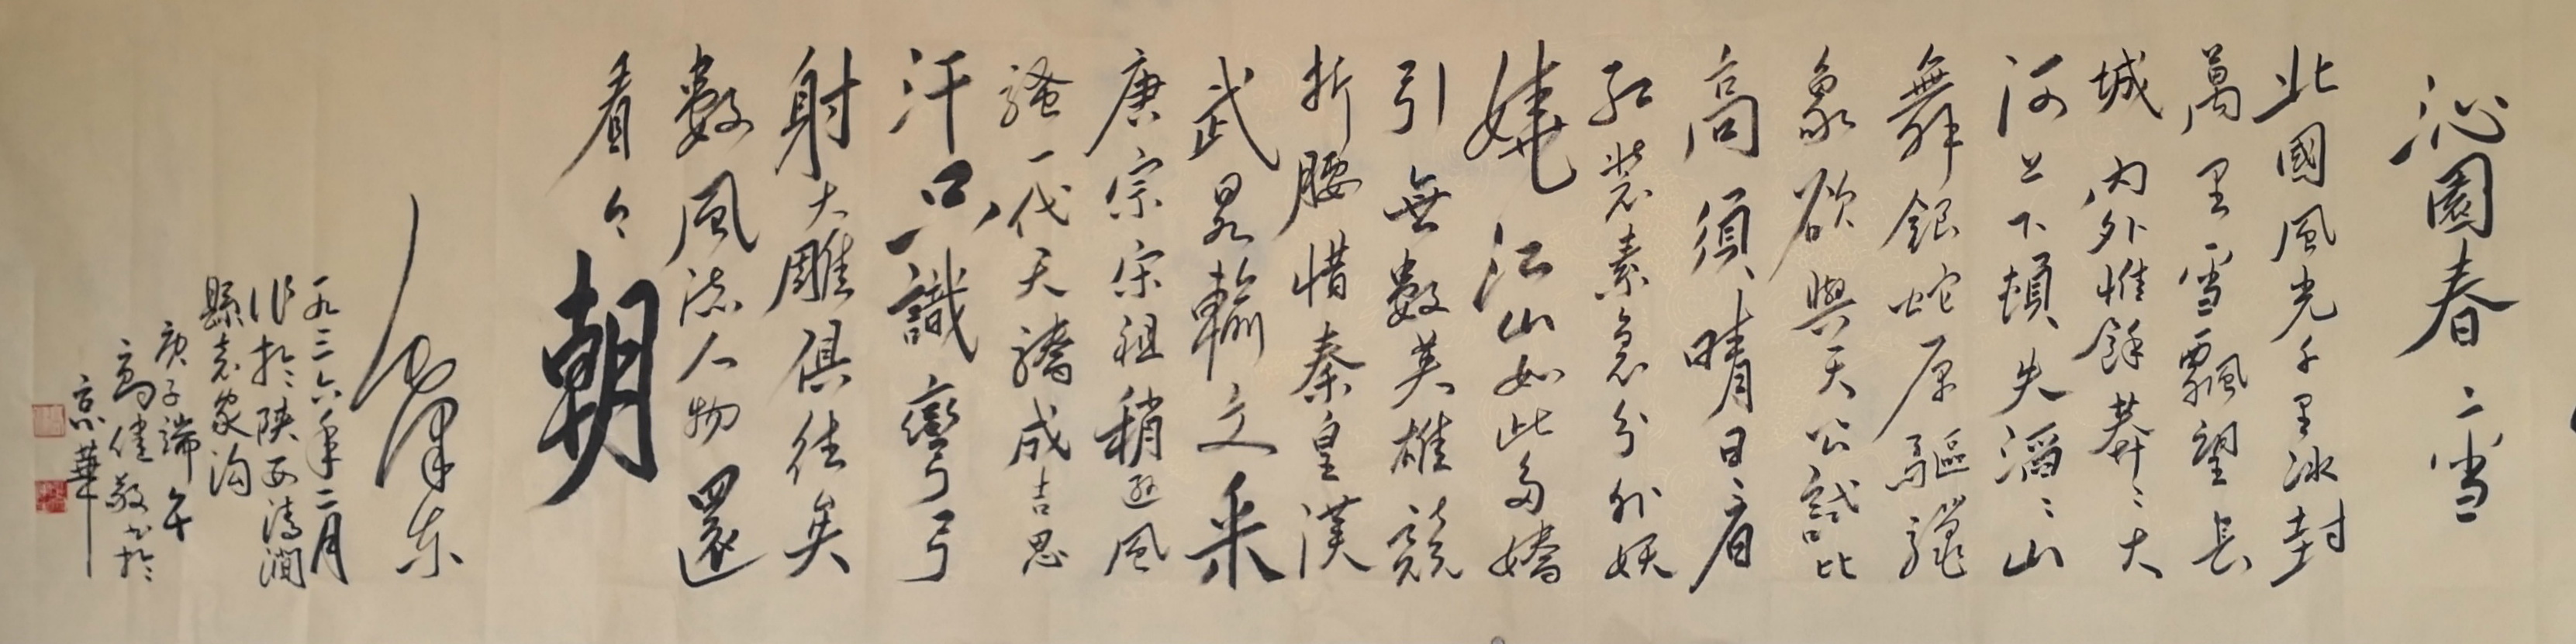 沁園春 雪
北國風光千里冰封
萬里雪飄望長
城內外惟餘莽〻大
河上下頓失滔〻山
舞銀蛇原驅臘
象欲與天公試比
高須晴日看
紅裝素裹分外妖
嬈江山如此多嬌
引無數英雄競
折腰惜秦皇漢
武畧輸文采
唐宗宋祖稍遜風
騷一代天驕成吉思
汗只識彎弓
射大雕俱往矣
數風流人物還
看今朝
毛澤東
一九三六年二月
作於陝西清澗
縣袁家溝
庚子端午
高健敬書於
京華